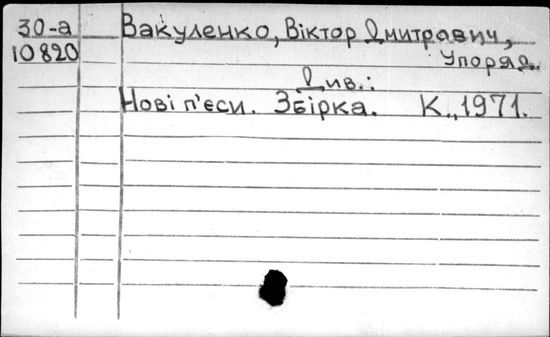 30-а Вакуленко, Віктор Дмитрович,
10820 Упоряд.
Див.:
Нові п'єси. Збірка. К., 1971.